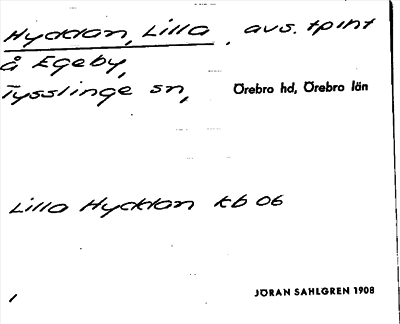 Hycklan, Lilla, avs. tpiht
å Egeby,
Tysslinge sn, Örebro hd, Örebro län
Lilla Hycklan kb 06
1 JÖRAN SAHLGREN 1908